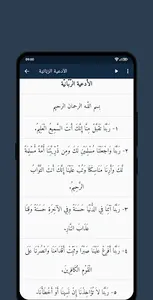 الأدعية الربانية
الأدعية الربانية
بسم الله الرحمان الرحيم
١- رَبَّنَا تَقَبَّلْ مِنَّا إِنَّكَ أَنْتَ السَّمِيعُ العَلِيمُ.
٢- رَبَّنَا وَاجْعَلْنَا مُسْلِمَيْنِ لَكَ وَمِن ذُرِّيَّتِنَا أُمَّةً مُّسْلِمَةً
لَّكَ وَأَرِنَا مَنَاسِكَنَا وَتُبْ عَلَيْنَا إِنَّكَ أَنتَ التَّوَّابُ
الرَّحِيمُ.
٣- رَبَّنَا آتِنَا فِي الدُّنْيَا حَسَنَةً وَفِي الآخِرَةِ حَسَنَةً وَقِنَا
عَذَابَ النَّارِ.
٤- رَبَّنَا أَفْرِغْ عَلَيْنَا صَبْرًا وَثَبِّتْ أَقْدَامَنَا وَانصُرْنَا عَلَى
القَوْمِ الكَافِرِينَ.
٥- رَبَّنَا لاَ تُؤَاخِذْنَا إِن نَّسِينَا أَوْ أَخْطَأْنَا